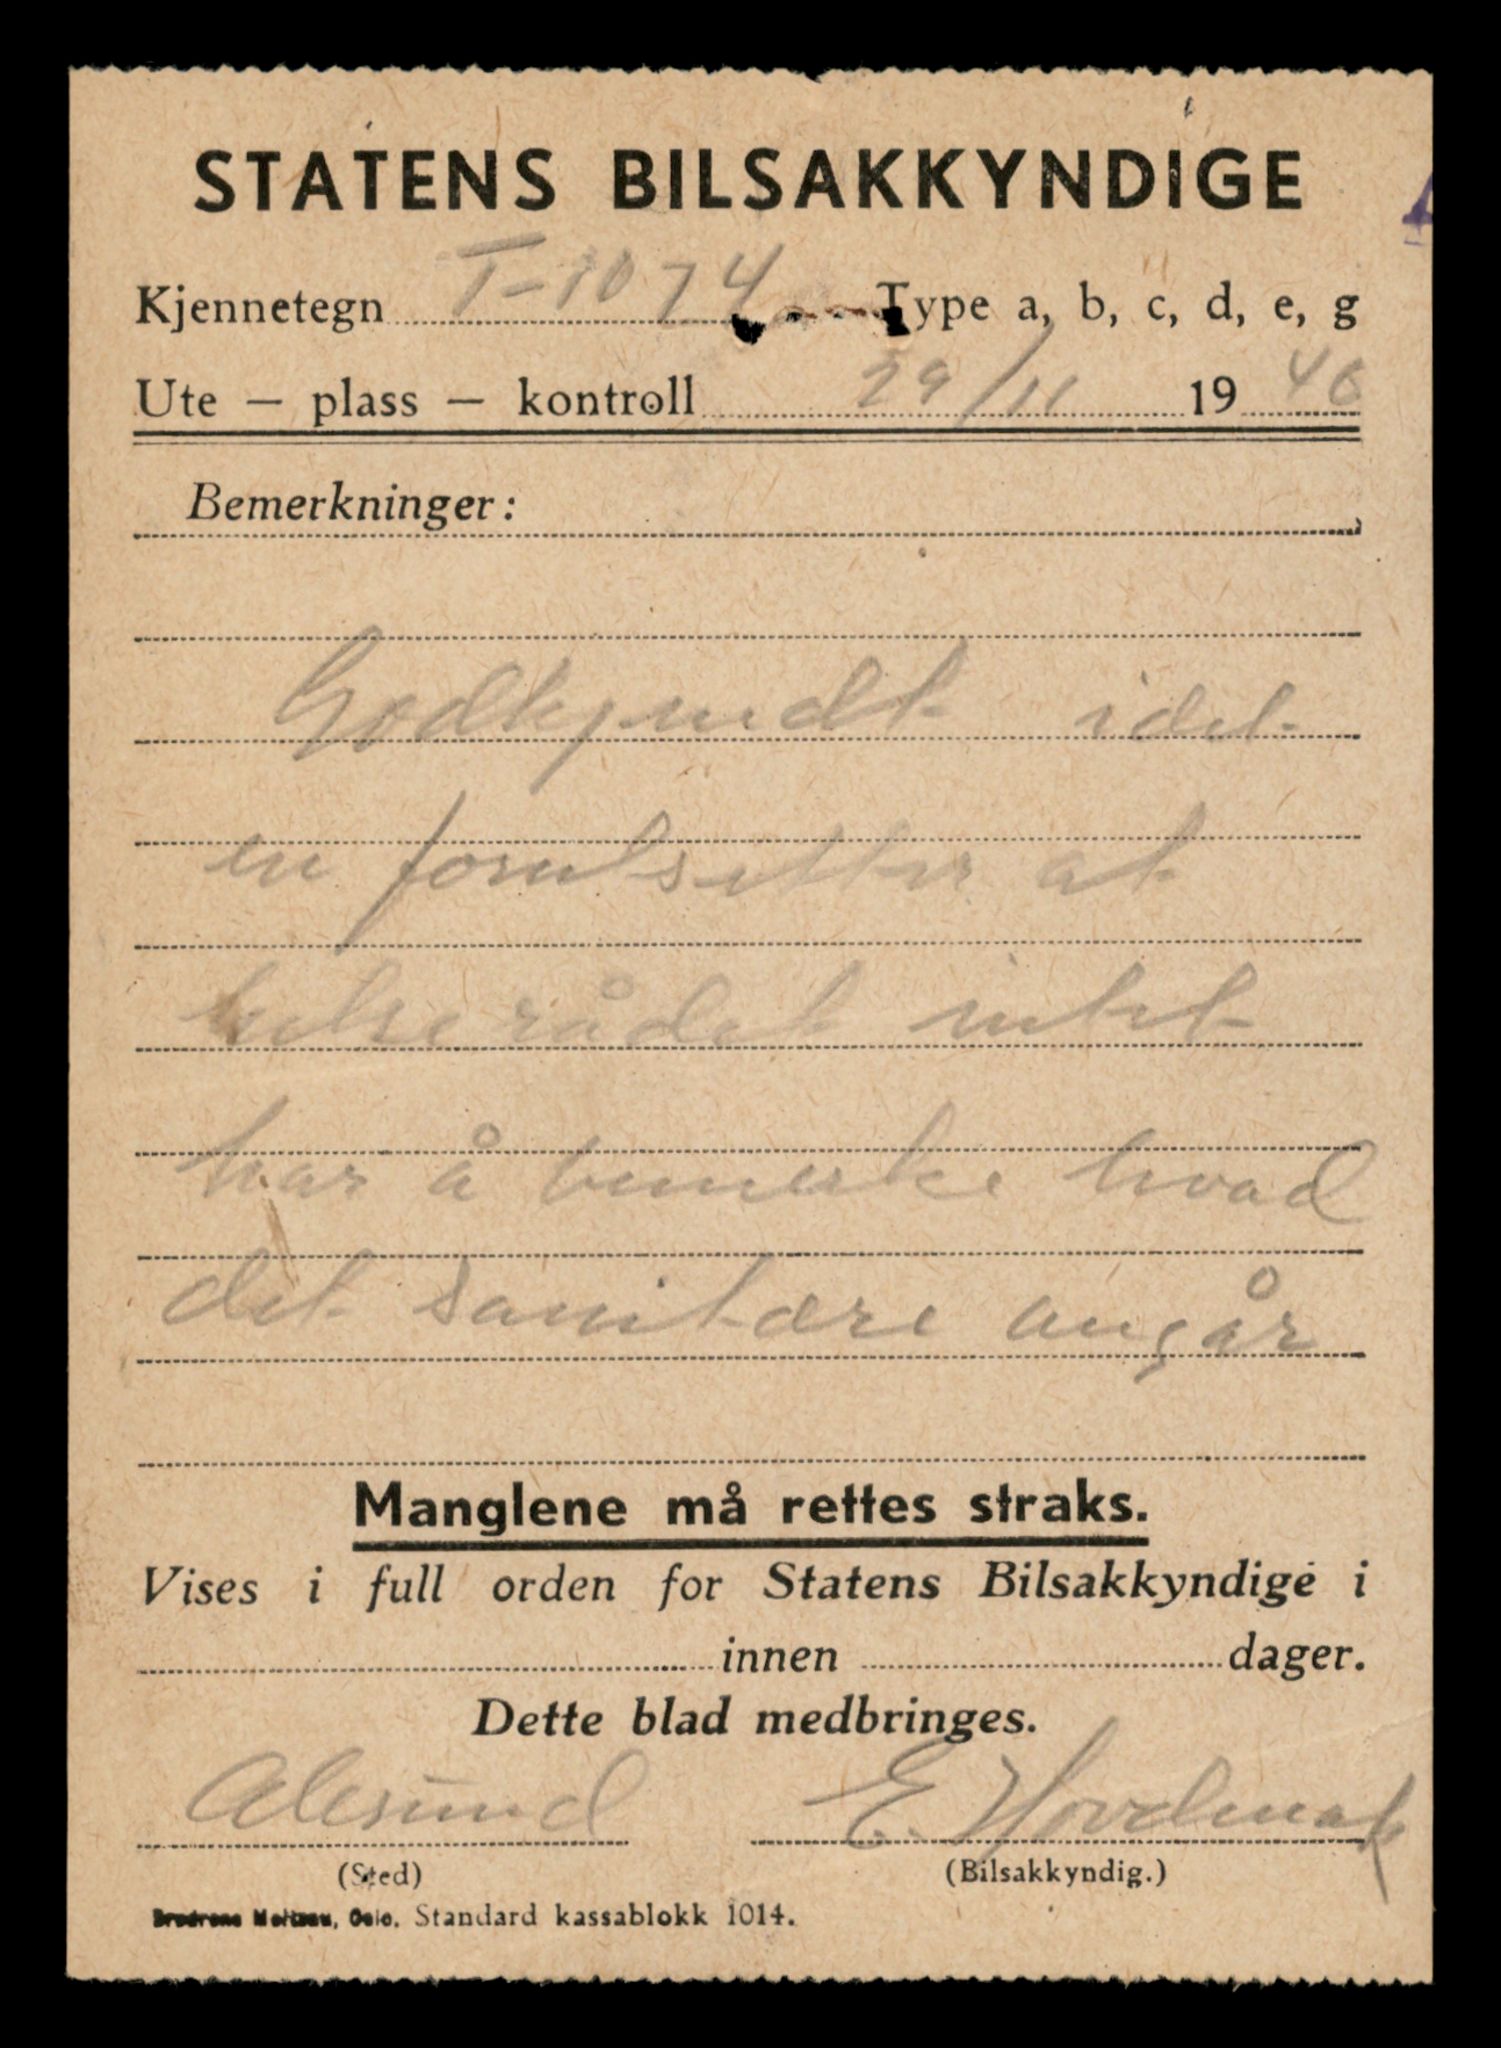 STATENS BILSAKKYNDIGE
Kjennetegn T-1074 Type a, b, c, d, e, g
Ute — plass — kontroll 29/11 1946
Bemerkninger:
Godkjendt idet
en forutsetter at
helserådet intet
har å bemerke hvad
det sanitære angår
Manglene må rettes straks.
Vises i full orden for Statens Bilsakkyndige i
innen dager.
Dette blad medbringes.
Alesund E. Hovdenak
(Sted) (Bilsakkyndig.)
Brødrene Moltzau, Oslo. Standard kassablokk 1014.